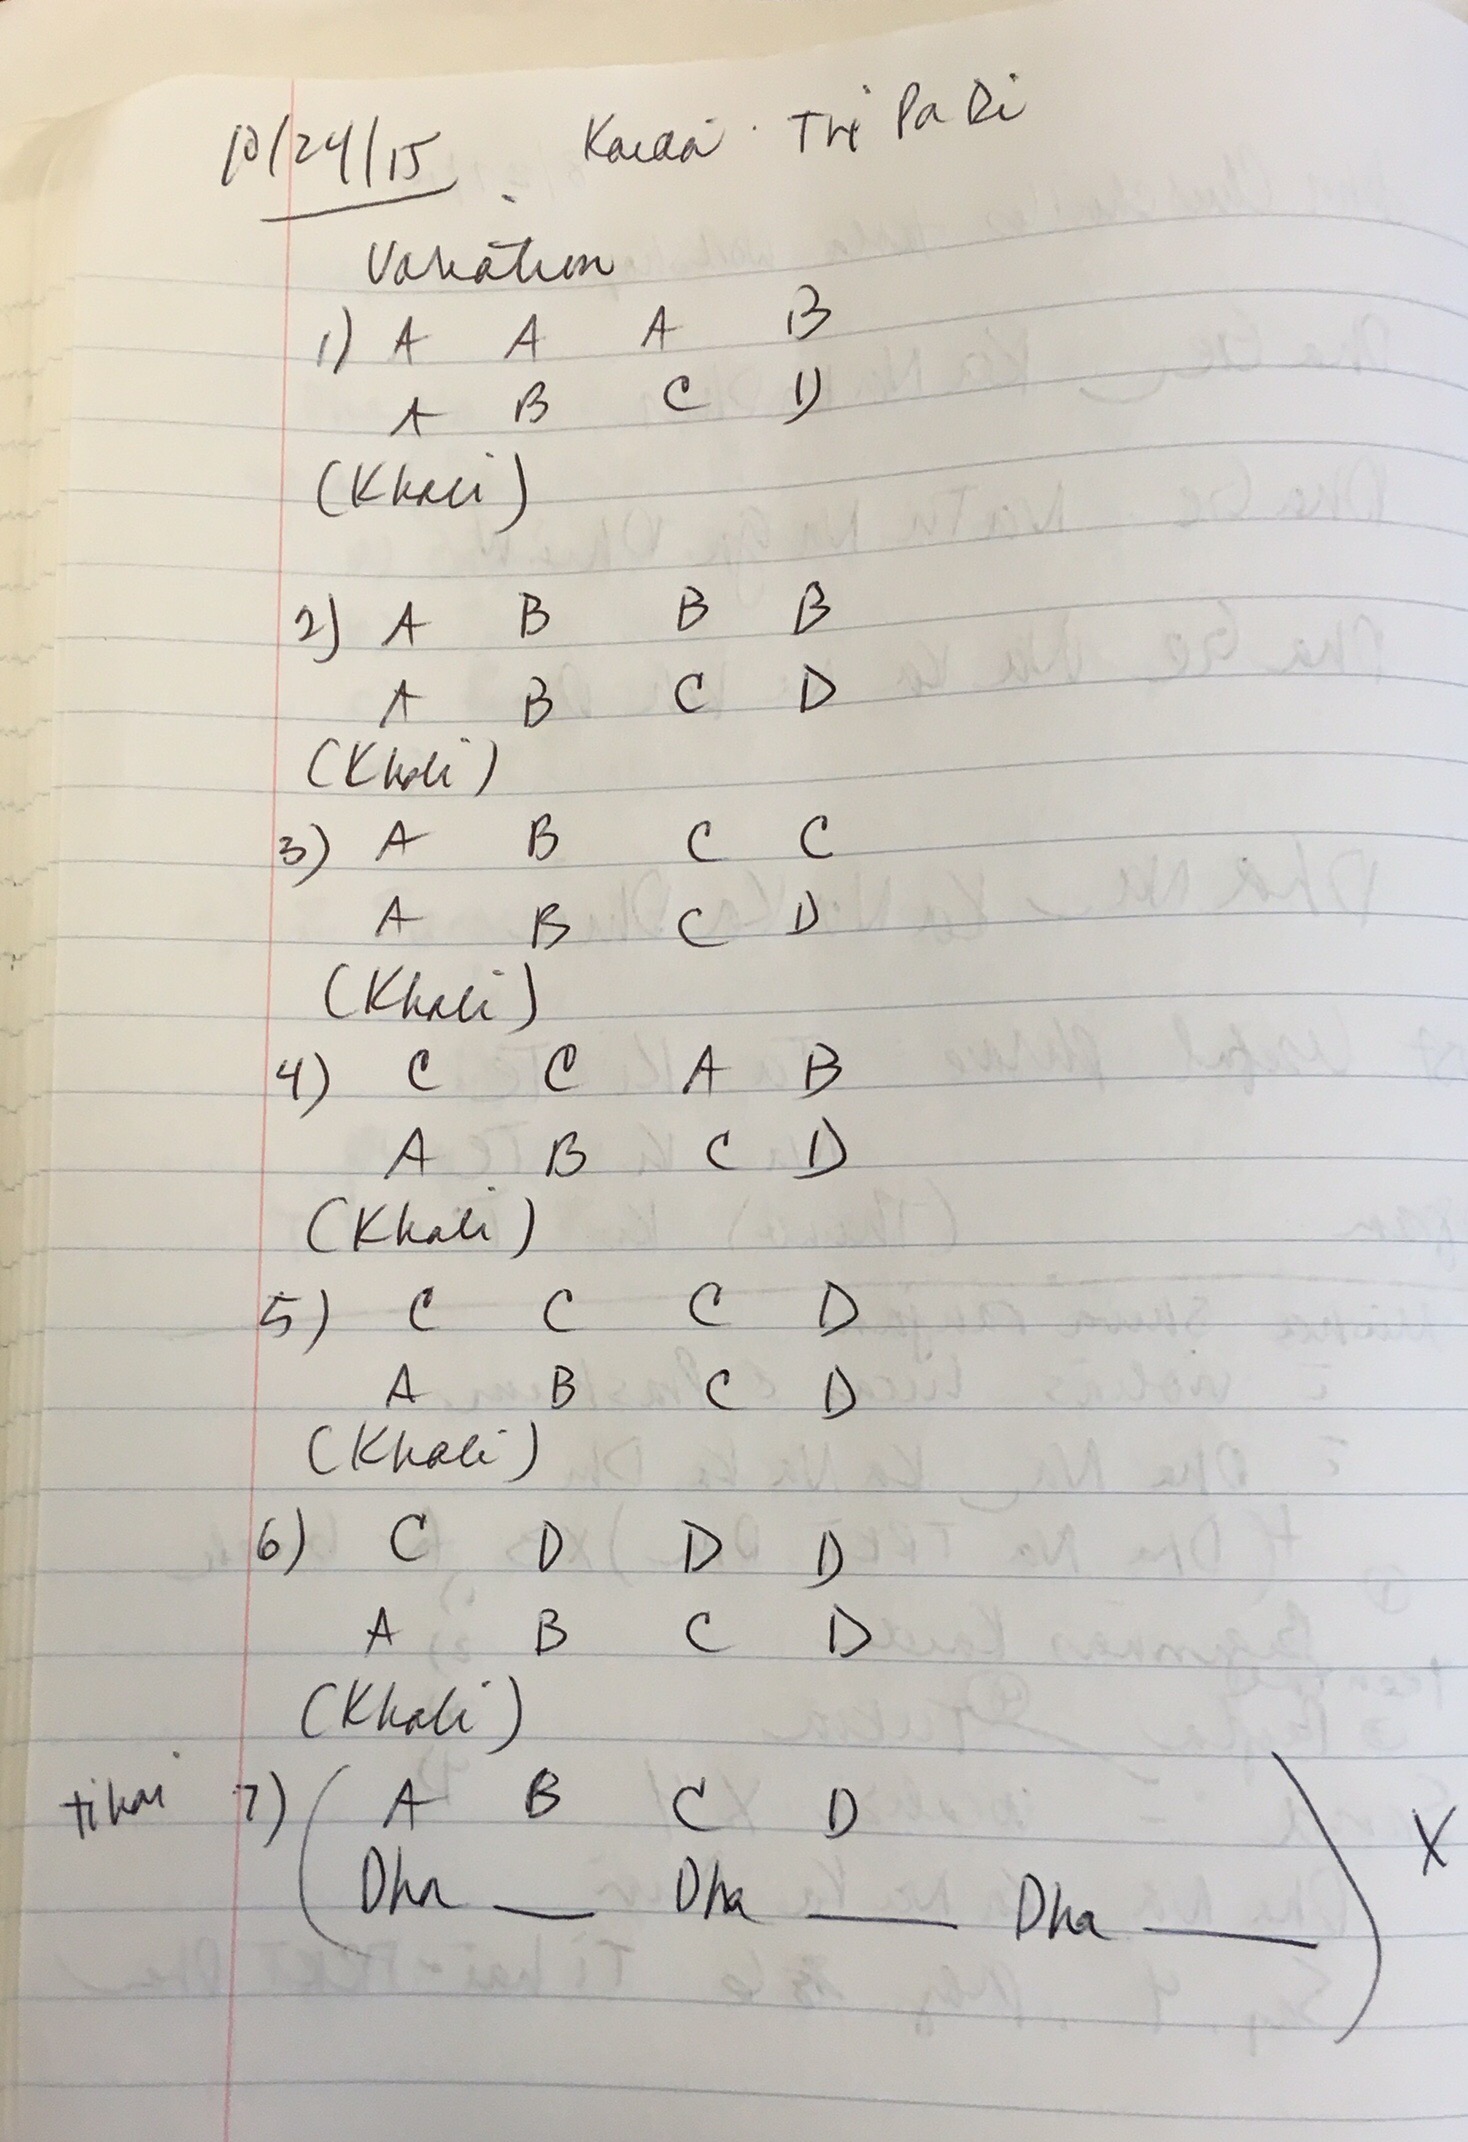 10/24/15 Kaida. Tri Pa Di
Variation
1) A A A B
A B C D
(Khali)
2) A B B B
A B C D
(Khali)
3) A B C C
A B C D
(Khali)
4) C C A B
A B C D
(Khali)
5) C C C D
A B C D
(Khali)
6) C D D D
A B C D
(Khali)
tihai 7) ( A B C D
Dha __ Dha __ Dha __ ) X